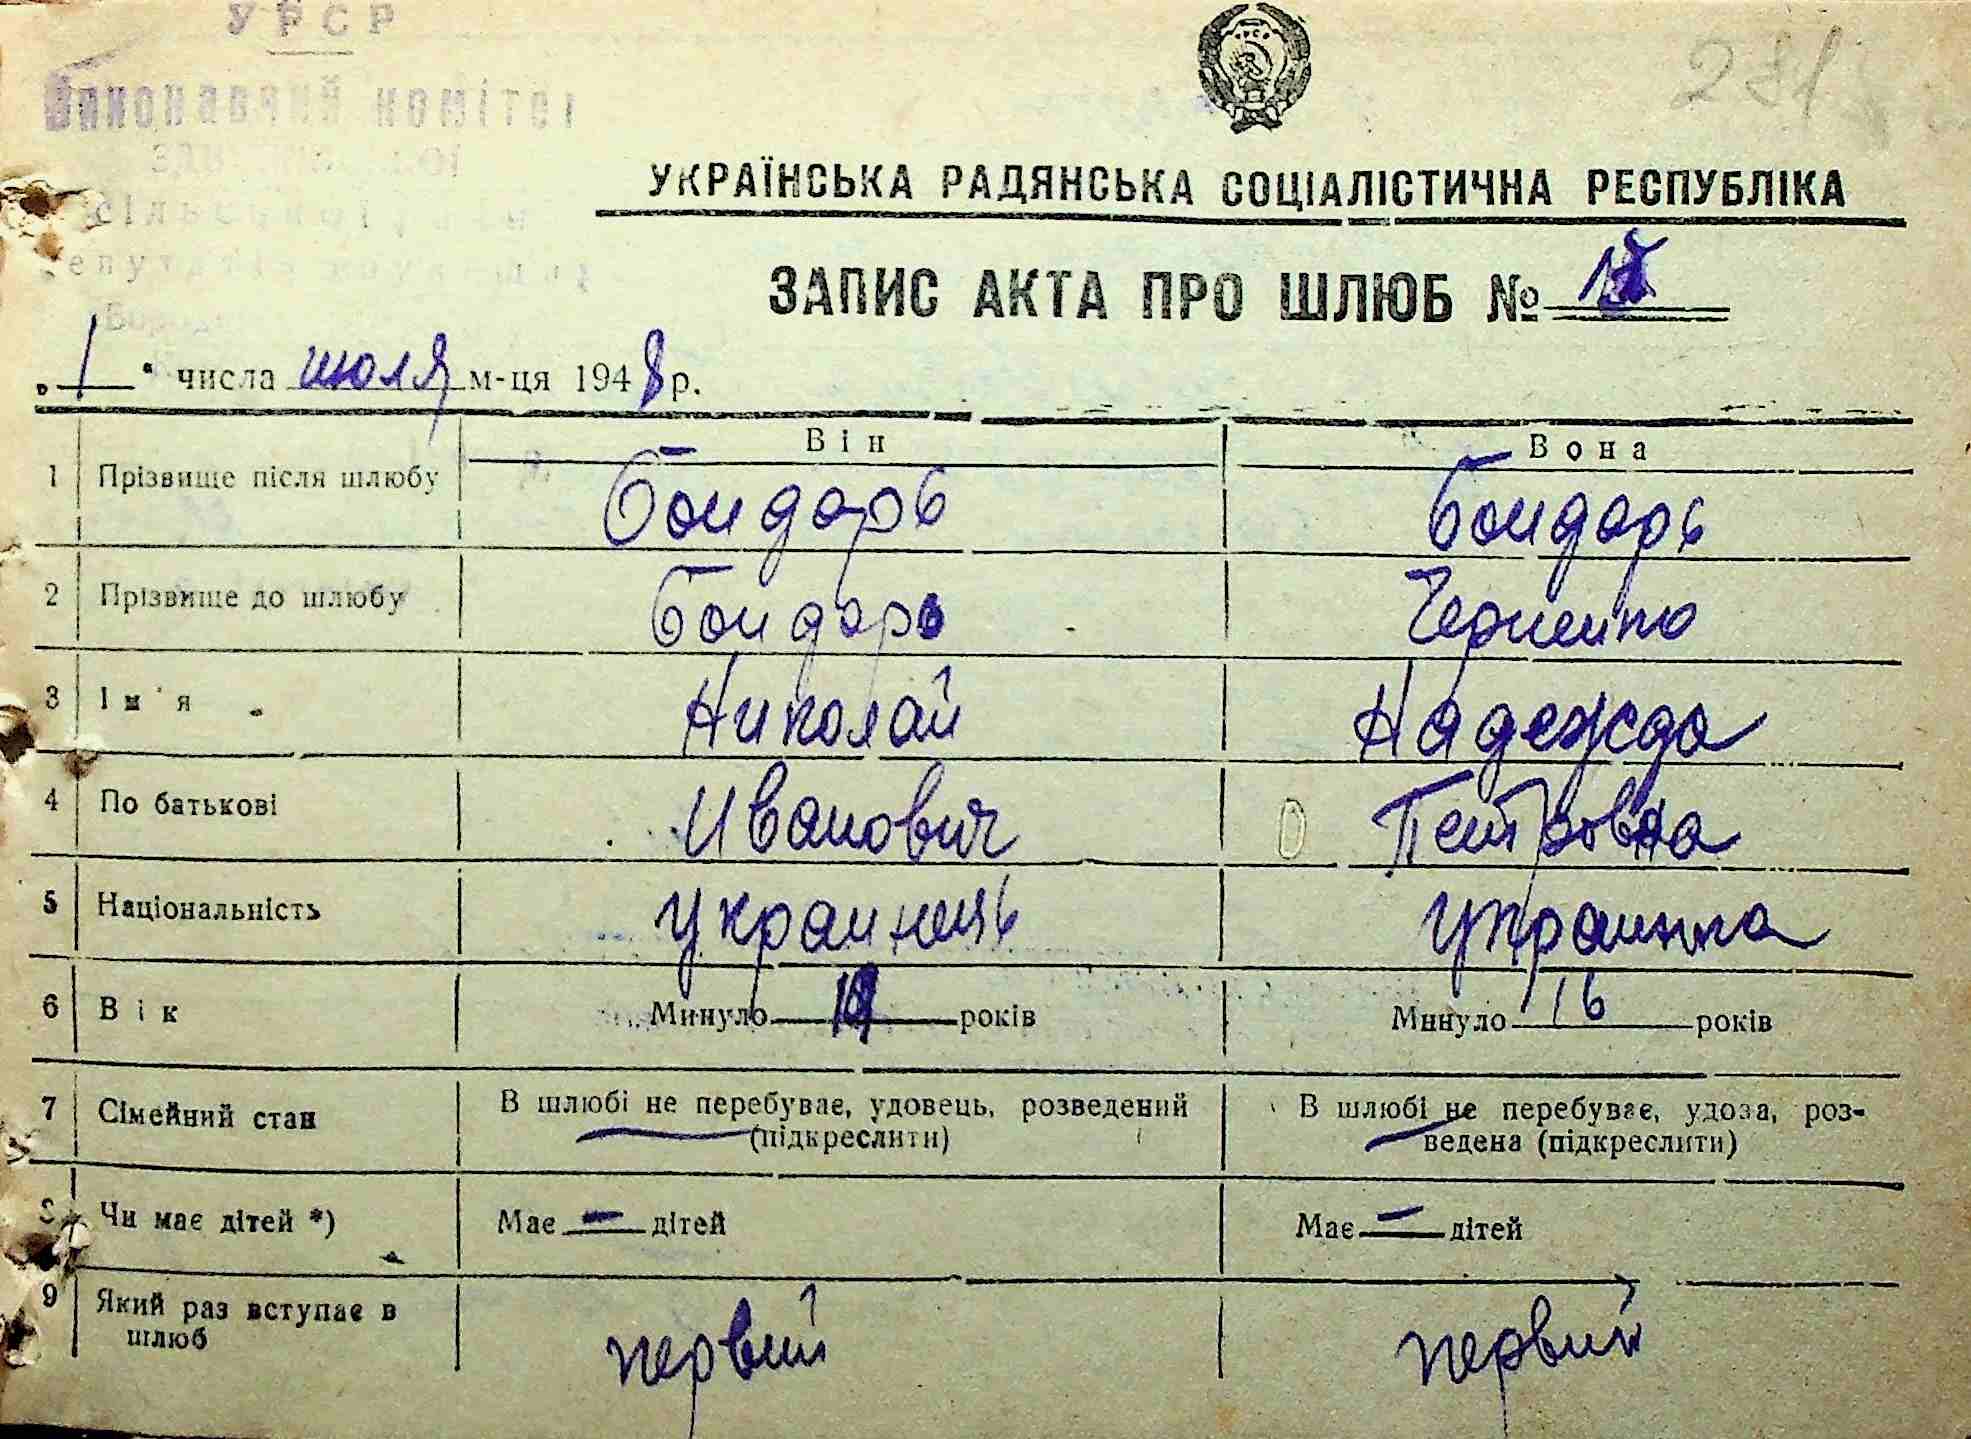 УРСР
Виконавчий комітет
сільської ради
депутатів
281
УКРАЇНСЬКА РАДЯНСЬКА СОЦІАЛІСТИЧНА РЕСПУБЛІКА
ЗАПИС АКТА ПРО ШЛЮБ №
„1“ числа июля м-ця 1948 р.
Він Вона
1 Прізвище після шлюбу Бондарь Бондарь
2 Прізвище до шлюбу Бондарь Черненко
3 Ім'я Николай Надежда
4 По батькові Иванович Петровна
5 Національність украинець украинка
6 Вік Минуло 19 років Минуло 16 років
7 Сімейний стан В шлюбі не перебуває, удовець, розведений В шлюбі не перебуває, удова, роз-
(підкреслити) ведена (підкреслити)
8 Чи має дітей *) Має — дітей Має — дітей
9 Який раз вступає в первий первий
шлюб